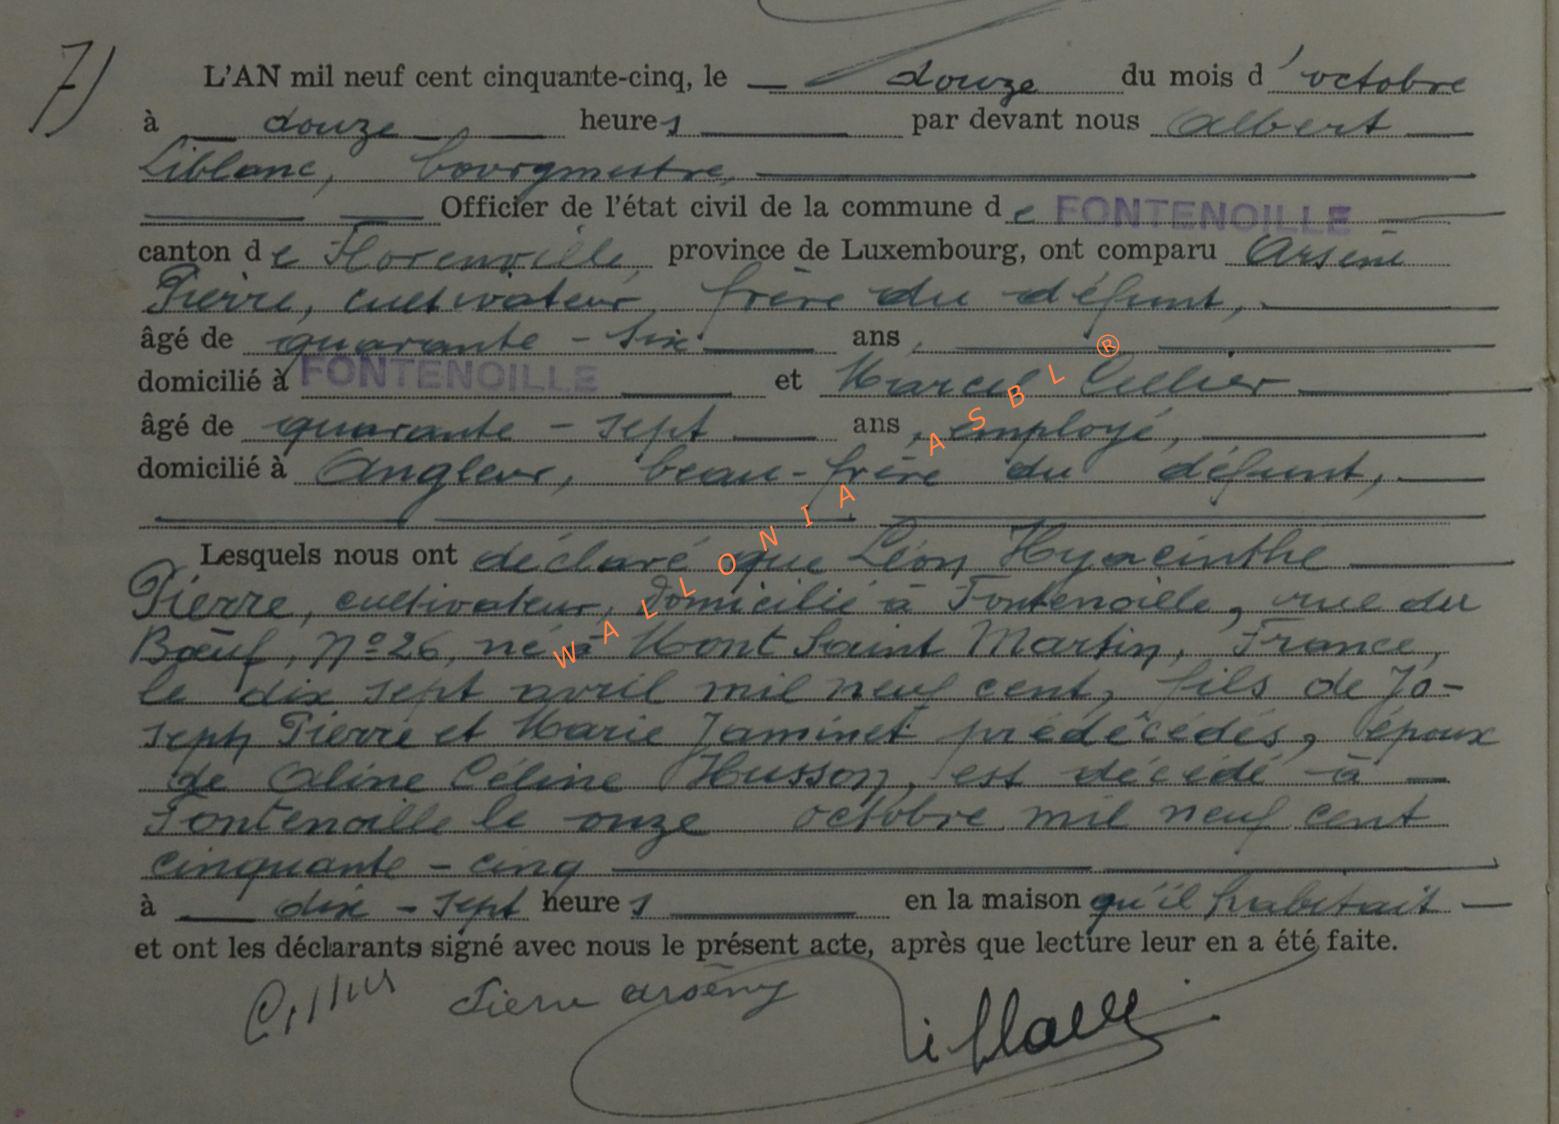 7)
L'AN mil neuf cent cinquante-cinq, le douze du mois d'octobre
à douze heures par devant nous Albert
Liblanc, bourgmestre,
Officier de l'état civil de la commune de FONTENOILLE
canton de Florenville, province de Luxembourg, ont comparu Arsène
Pierre, cultivateur, frère du défunt,
âgé de quarante-six ans,
domicilié à FONTENOILLE et Marcel Collier
âgé de quarante-sept ans, employé,
domicilié à Angleur, beau-frère du défunt,
Lesquels nous ont déclaré que Léon Hyacinthe
Pierre, cultivateur, domicilié à Fontenoille, rue du
Bœuf, N° 26, né à Mont Saint Martin, France,
le dix sept avril mil neuf cent, fils de Jo-
seph Pierre et Marie Jaminet prédécédés, époux
de Aline Céline Husson, est décédé à
Fontenoille le onze octobre mil neuf cent
cinquante-cinq
à dix-sept heures en la maison qu'il habitait
et ont les déclarants signé avec nous le présent acte, après que lecture leur en a été faite.
Pierre Arsène
Liblanc
WALLONIA ASBL ®